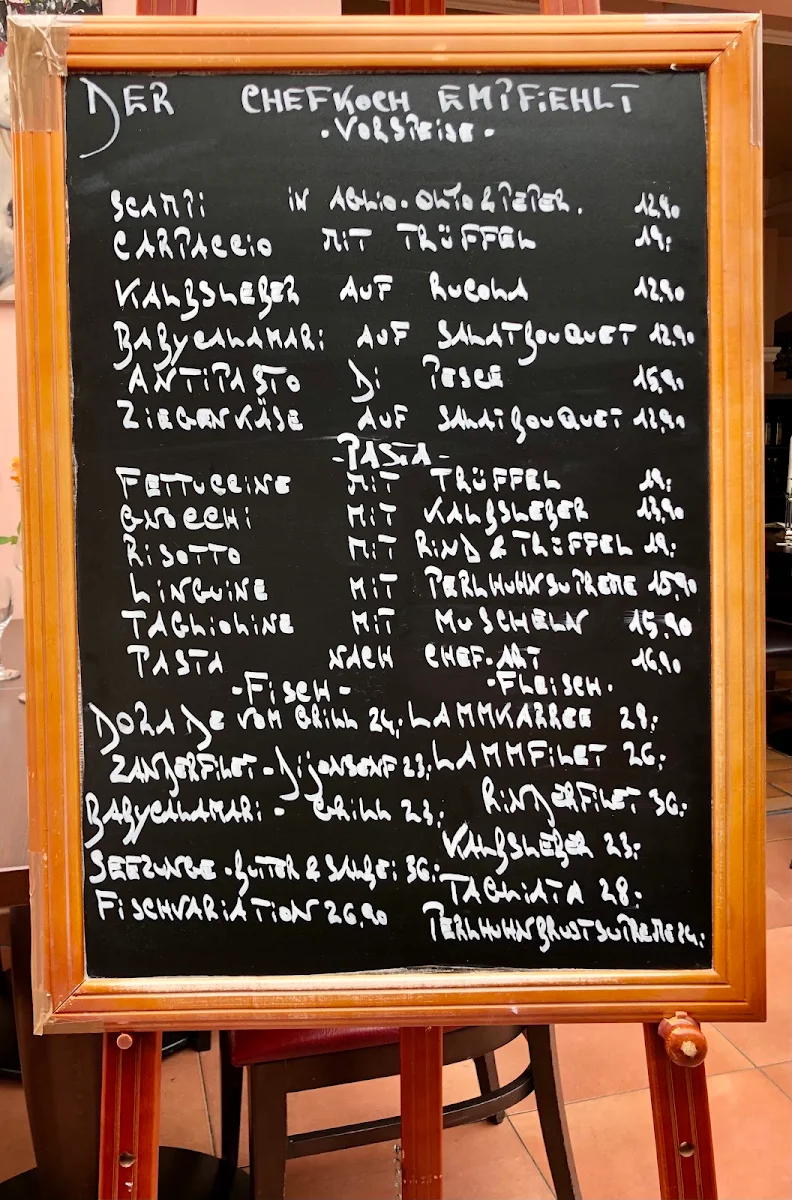 DER CHEFKOCH EMPFiEHLT
·VORSPEiSE·
SCAMPi iN AGLiO·OLIO & PEPER. 12,90
CARPACCiO MiT TRÜFFEL 19,-
KALBSLEBER AUF RUCOLA 12,90
BABYCALAMARi AUF SALATBOUQUET 12,90
ANTiPASTO Di PESCE 15,90
ZiEGENKÄSE AUF SALATBOUQUET 12,90
-PASTA-
FETTUCCiNE MiT TRÜFFEL 19,-
GNOCCHi MiT KALBSLEBER 13,90
RiSOTTO MiT RiND & TRÜFFEL 19,-
LiNGUiNE MiT PERLHUHNSUPREME 15,90
TAGLiOLiNE MiT MUSCHELN 15,90
PASTA NACH CHEF·ART 16,90
-FiSCH-
DORADE VOM GRiLL 24,-
ZANDERFiLET-DiJONSENF 23,-
BABYCALAMARi - GRiLL 23,-
SEEZUNGE·BUTTER & SALBEi 36,-
FiSCHVARiATiON 26,90
·FLEiSCH·
LAMMKARREE 28,-
LAMMFiLET 26,-
RiNDERFiLET 36,-
KALBSLEBER 23,-
TAGLiATA 28,-
PERLHUHNBRUSTSUPREME 24,-